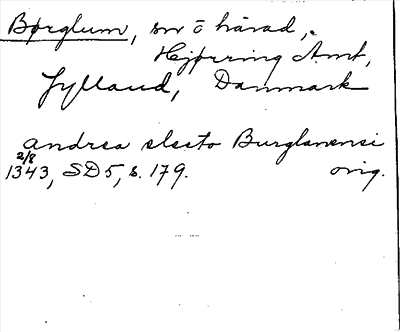 Børglum, sn o härad,
Hjørring Amt,
Jylland, Danmark
Andrea electo Burglanensi
2/8
1343, SD 5, s. 179. orig.